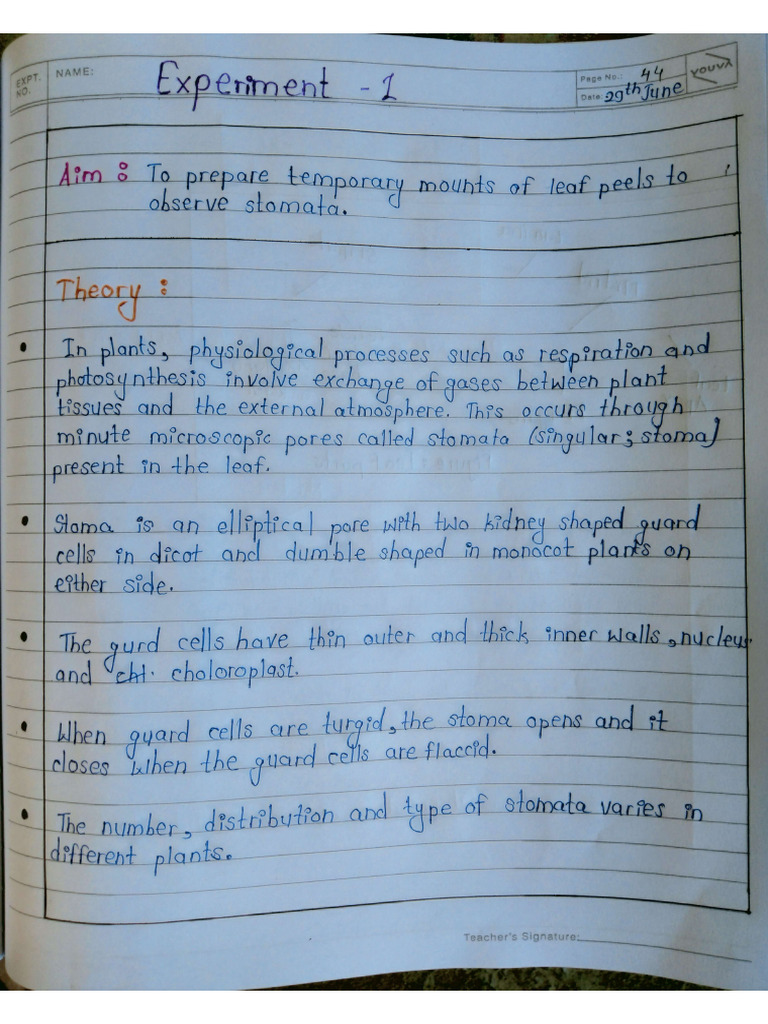 EXPT. NO.
NAME:
Experiment - 1
Page No.: 44
Date: 29th June
YOUVA
Aim : To prepare temporary mounts of leaf peels to
observe stomata.
Theory :
• In plants, physiological processes such as respiration and
photosynthesis involve exchange of gases between plant
tissues and the external atmosphere. This occurs through
minute microscopic pores called stomata (singular; stoma)
present in the leaf.
• Stoma is an elliptical pore with two kidney shaped guard
cells in dicot and dumble shaped in monocot plants on
either side.
• The gurd cells have thin outer and thick inner walls, nucleus
and cht. choloroplast.
• When guard cells are turgid, the stoma opens and it
closes when the guard cells are flaccid.
• The number, distribution and type of stomata varies in
different plants.
Teacher's Signature: